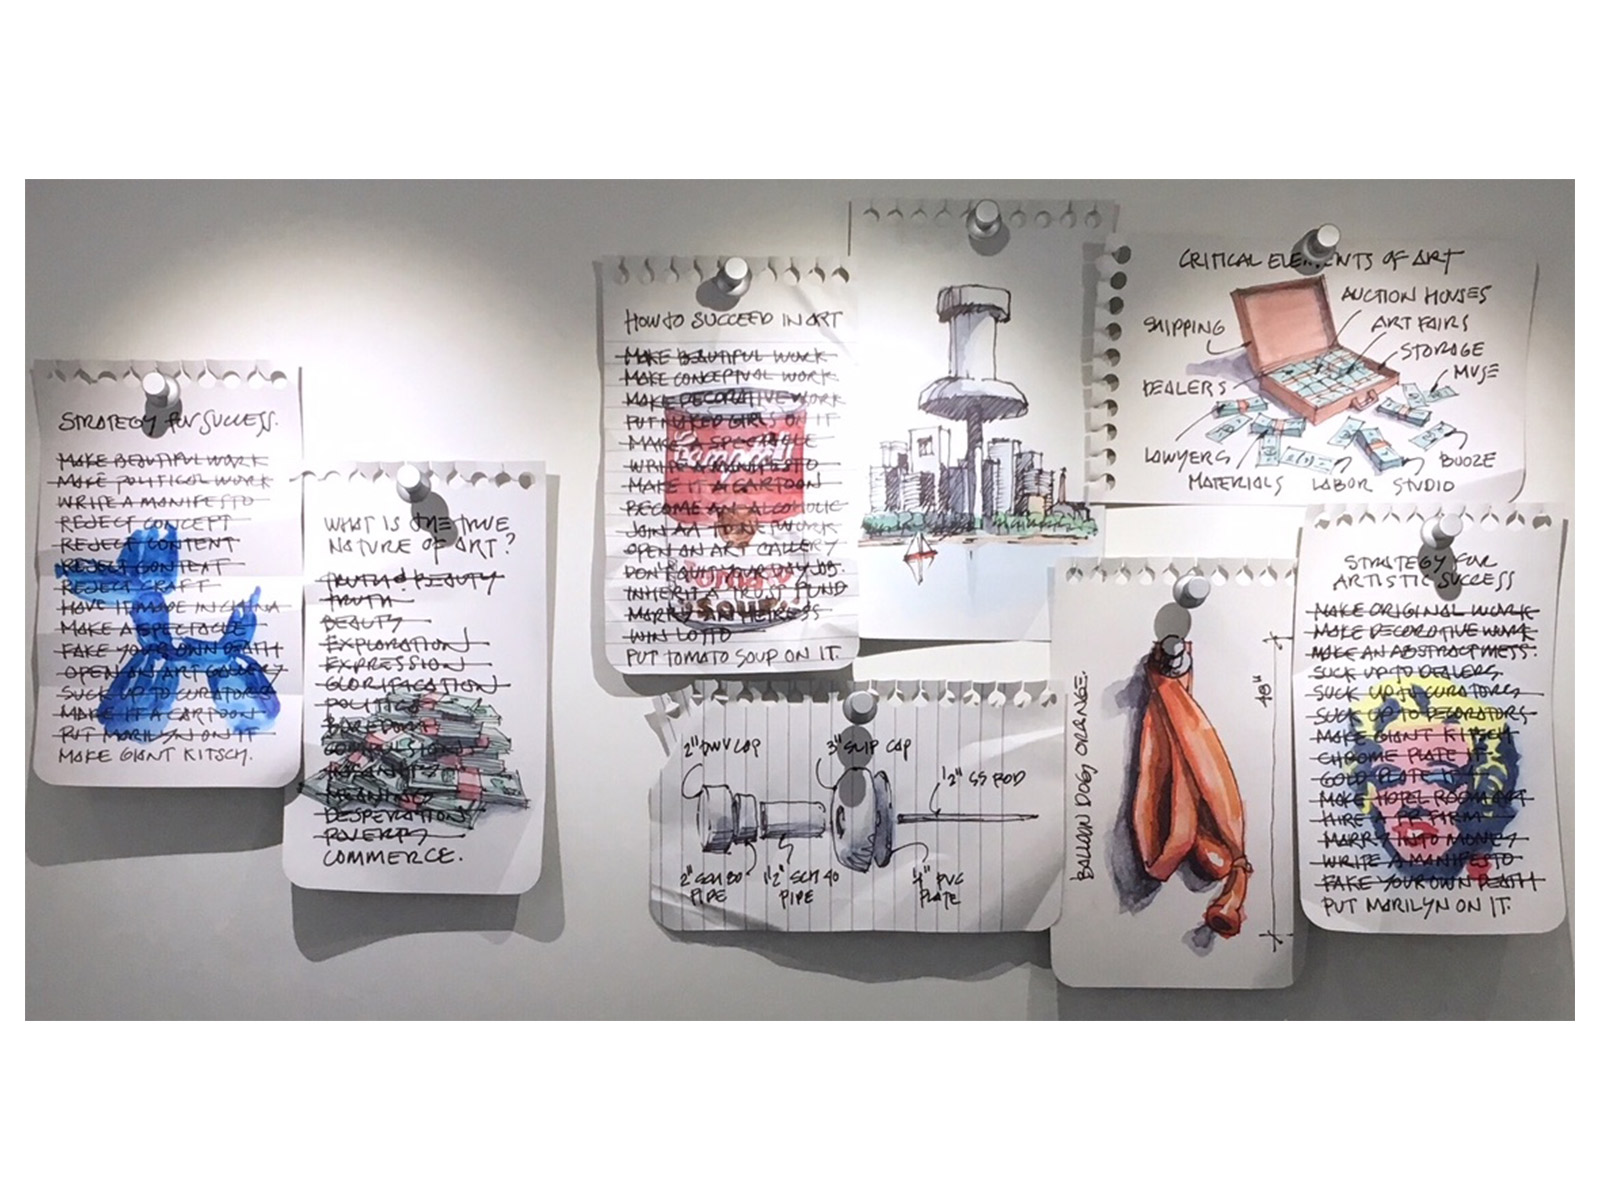 STRATEGY FOR SUCCESS.
MAKE BEAUTIFUL WORK
MAKE POLITICAL WORK
WRITE A MANIFESTO
REJECT CONCEPT
REJECT CONTENT
REJECT CONTEXT
REJECT CRAFT
HAVE IT MADE IN CHINA
MAKE A SPECTACLE
FAKE YOUR OWN DEATH
OPEN AN ART GALLERY
SUCK UP TO CURATORS
MAKE IT A CARTOON
PUT MARILYN ON IT
MAKE GIANT KITSCH.
WHAT IS THE TRUE
NATURE OF ART?
TRUTH & BEAUTY
TRUTH
BEAUTY
EXPLORATION
EXPRESSION
GLORIFICATION
POLITICS
BOREDOM
COMPULSION
INSANITY
MEANING
DESPERATION
POVERTY
COMMERCE.
HOW TO SUCCEED IN ART
MAKE BEAUTIFUL WORK
MAKE CONCEPTUAL WORK
MAKE DECORATIVE WORK
PUT NAKED GIRLS ON IT
MAKE A SPECTACLE
WRITE A MANIFESTO
MAKE IT A CARTOON
BECOME AN ALCOHOLIC
JOIN AA TO NETWORK
OPEN AN ART GALLERY
DON'T QUIT YOUR DAY JOB.
INHERIT A TRUST FUND
MARRY AN HEIRESS
WIN LOTTO
PUT TOMATO SOUP ON IT.
Campbell's
Tomato
SOUP
CRITICAL ELEMENTS OF ART
AUCTION HOUSES
SHIPPING
ART FAIRS
STORAGE
MUSE
DEALERS
LAWYERS
BOOZE
MATERIALS LABOR STUDIO
2" DWV CAP
3" SLIP CAP
1/2" SS ROD
2" SCH 80
PIPE
1 1/2" SCH 40
PIPE
1/4" PVC
PLATE
BALLOON DOG, ORANGE.
48"
STRATEGY FOR
ARTISTIC SUCCESS
MAKE ORIGINAL WORK
MAKE DECORATIVE WORK
MAKE AN ABSTRACT MESS.
SUCK UP TO DEALERS
SUCK UP TO CURATORS
SUCK UP TO DECORATORS
MAKE GIANT KITSCH
CHROME PLATE IT
GOLD PLATE IT
MAKE HOTEL ROOM ART
HIRE A PR FIRM
MARRY INTO MONEY
WRITE A MANIFESTO
FAKE YOUR OWN DEATH
PUT MARILYN ON IT.